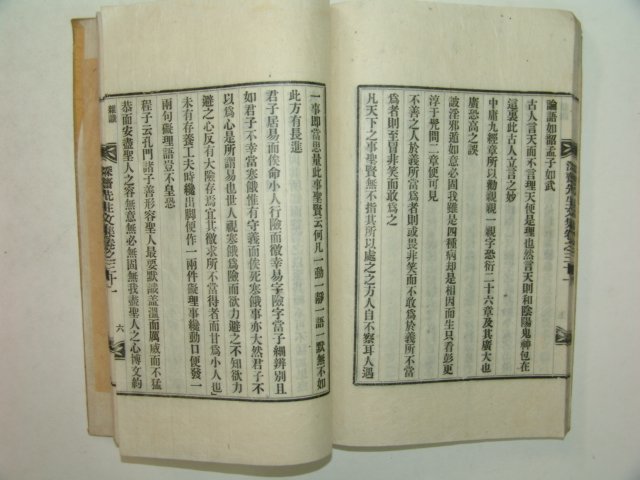 論語如詔孟子如武
古人言天而不言理天便是理也然言天則和陰陽鬼神包在
這裏此古人立言之妙
中庸九經章所以勸親親一親字恐衍二十六章及其廣大也
廣恐高之誤
詖淫邪遁如意必固我雖是四種病却是相因而生只看彭更
淳于髡問二章便可見
不善之人於義所當爲者則或畏非笑而不敢爲於義所不當
爲者則至冒非笑而敢爲之
凡天下之事聖賢無不指其所以處之之方人自不察耳人遇
一事即當思量此事聖賢云何凡一動一靜一語一默無不如
此方有長進
君子居易而俟命小人行險而徼幸易字險字當子細辨別且
如君子不幸當寒餓惟有守義而俟死寒餓事亦大然君子不
以爲心是所謂易也世人視寒餓爲險而欲力避之不知欲力
避之心反有大險存焉宜其徼求所不當得者而甘爲小人也
未有存養工夫時纔出脚便作一兩件礙理事纔動口便發一
兩句礙理語豈不皇恐
程子云孔門諸子善形容聖人最要默識盖溫而厲威而不猛
恭而安盡聖人之容無意無必無固無我盡聖人之心博文約
雜識
先生文集卷之三十一
六